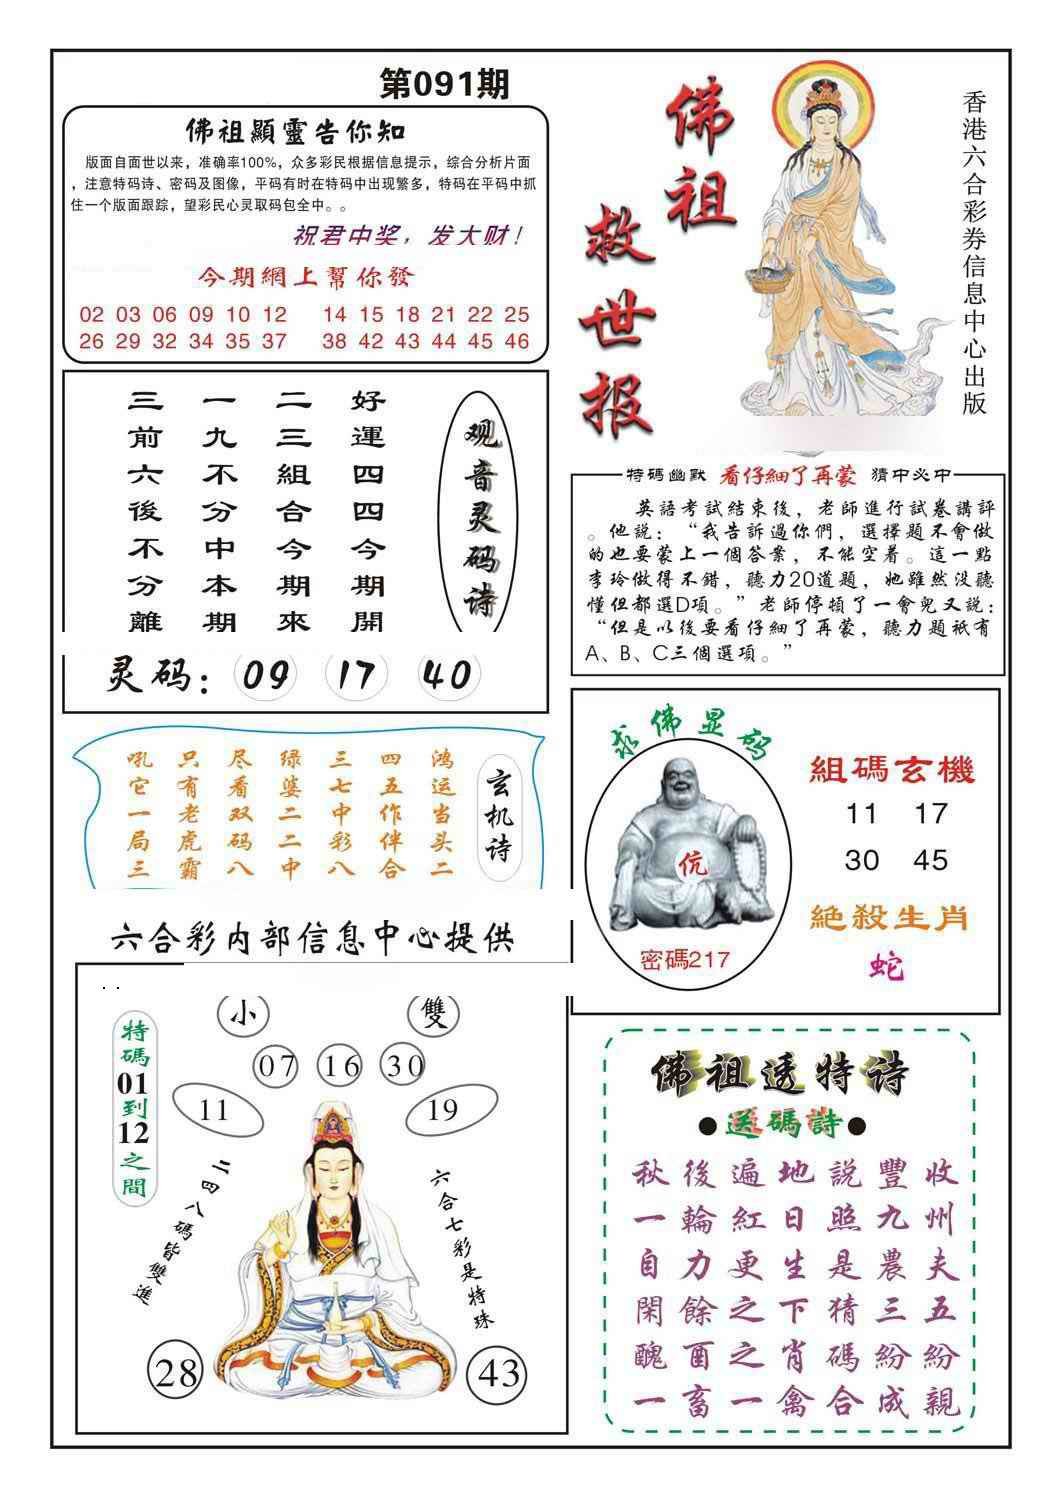 第091期
佛祖顯靈告你知
版面自面世以来，准确率100%，众多彩民根据信息提示，综合分析片面
，注意特码诗、密码及图像，平码有时在特码中出现繁多，特码在平码中抓
住一个版面跟踪，望彩民心灵取码包全中。。
祝君中奖，发大财！
今期網上幫你發
02 03 06 09 10 12 14 15 18 21 22 25
26 29 32 34 35 37 38 42 43 44 45 46
佛祖
救世报
香港六合彩券信息中心出版
观音灵码诗
好運四四今期開
二三組合今期來
一九不分中本期
三前六後不分離
灵码：09 17 40
特碼幽默 看仔細了再蒙 猜中必中
英語考試結束後，老師進行試卷講評
。他説：“我告訴過你們，選擇題不會做
的也要蒙上一個答案，不能空着。這一點
李玲做得不錯，聽力20道題，她雖然没聽
懂但都選D項。”老師停頓了一會兒又説：
“但是以後要看仔細了再蒙，聽力題衹有
A、B、C三個選項。”
玄机诗
鸿运当头二
四五作伴合
三七中彩八
绿婆二二中
尽看双码八
只有老虎霸
吼它一局三
求佛显码
伉
密碼217
組碼玄機
11 17
30 45
絶殺生肖
蛇
六合彩内部信息中心提供
小 雙
07 16 30
11 19
特碼01到12之間
二四八碼皆雙進
六合七彩是特珠
28 43
佛祖透特诗
●送碼詩●
秋後遍地説豐收
一輪紅日照九州
自力更生是農夫
閑餘之下猜三五
醜酉之肖碼紛紛
一畜一禽合成親